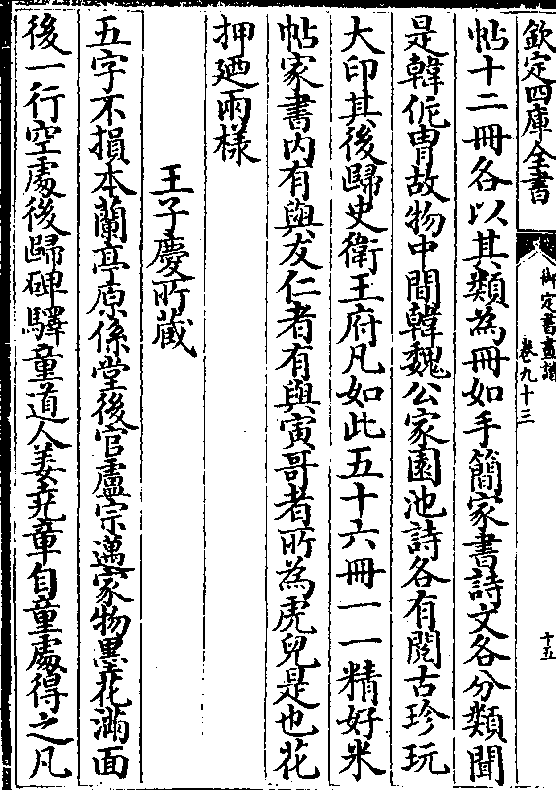 欽定四庫全書
御定書畫譜
卷九十三
十五
帖十二冊各以其類為冊如手簡家書詩文各分類聞
是韓侂胄故物中間韓魏公家園池詩各有閱古珍玩
大印其後歸史衛王府凡如此五十六冊一一精好米
帖家書內有與友仁者有與寅哥者所為虎兒是也花
押廼兩様
王子慶所蔵
五字不損本蘭亭原係堂後官盧宗邁家物墨花滿面
後一行空處後歸碑驛童道人姜堯章自童處得之凡